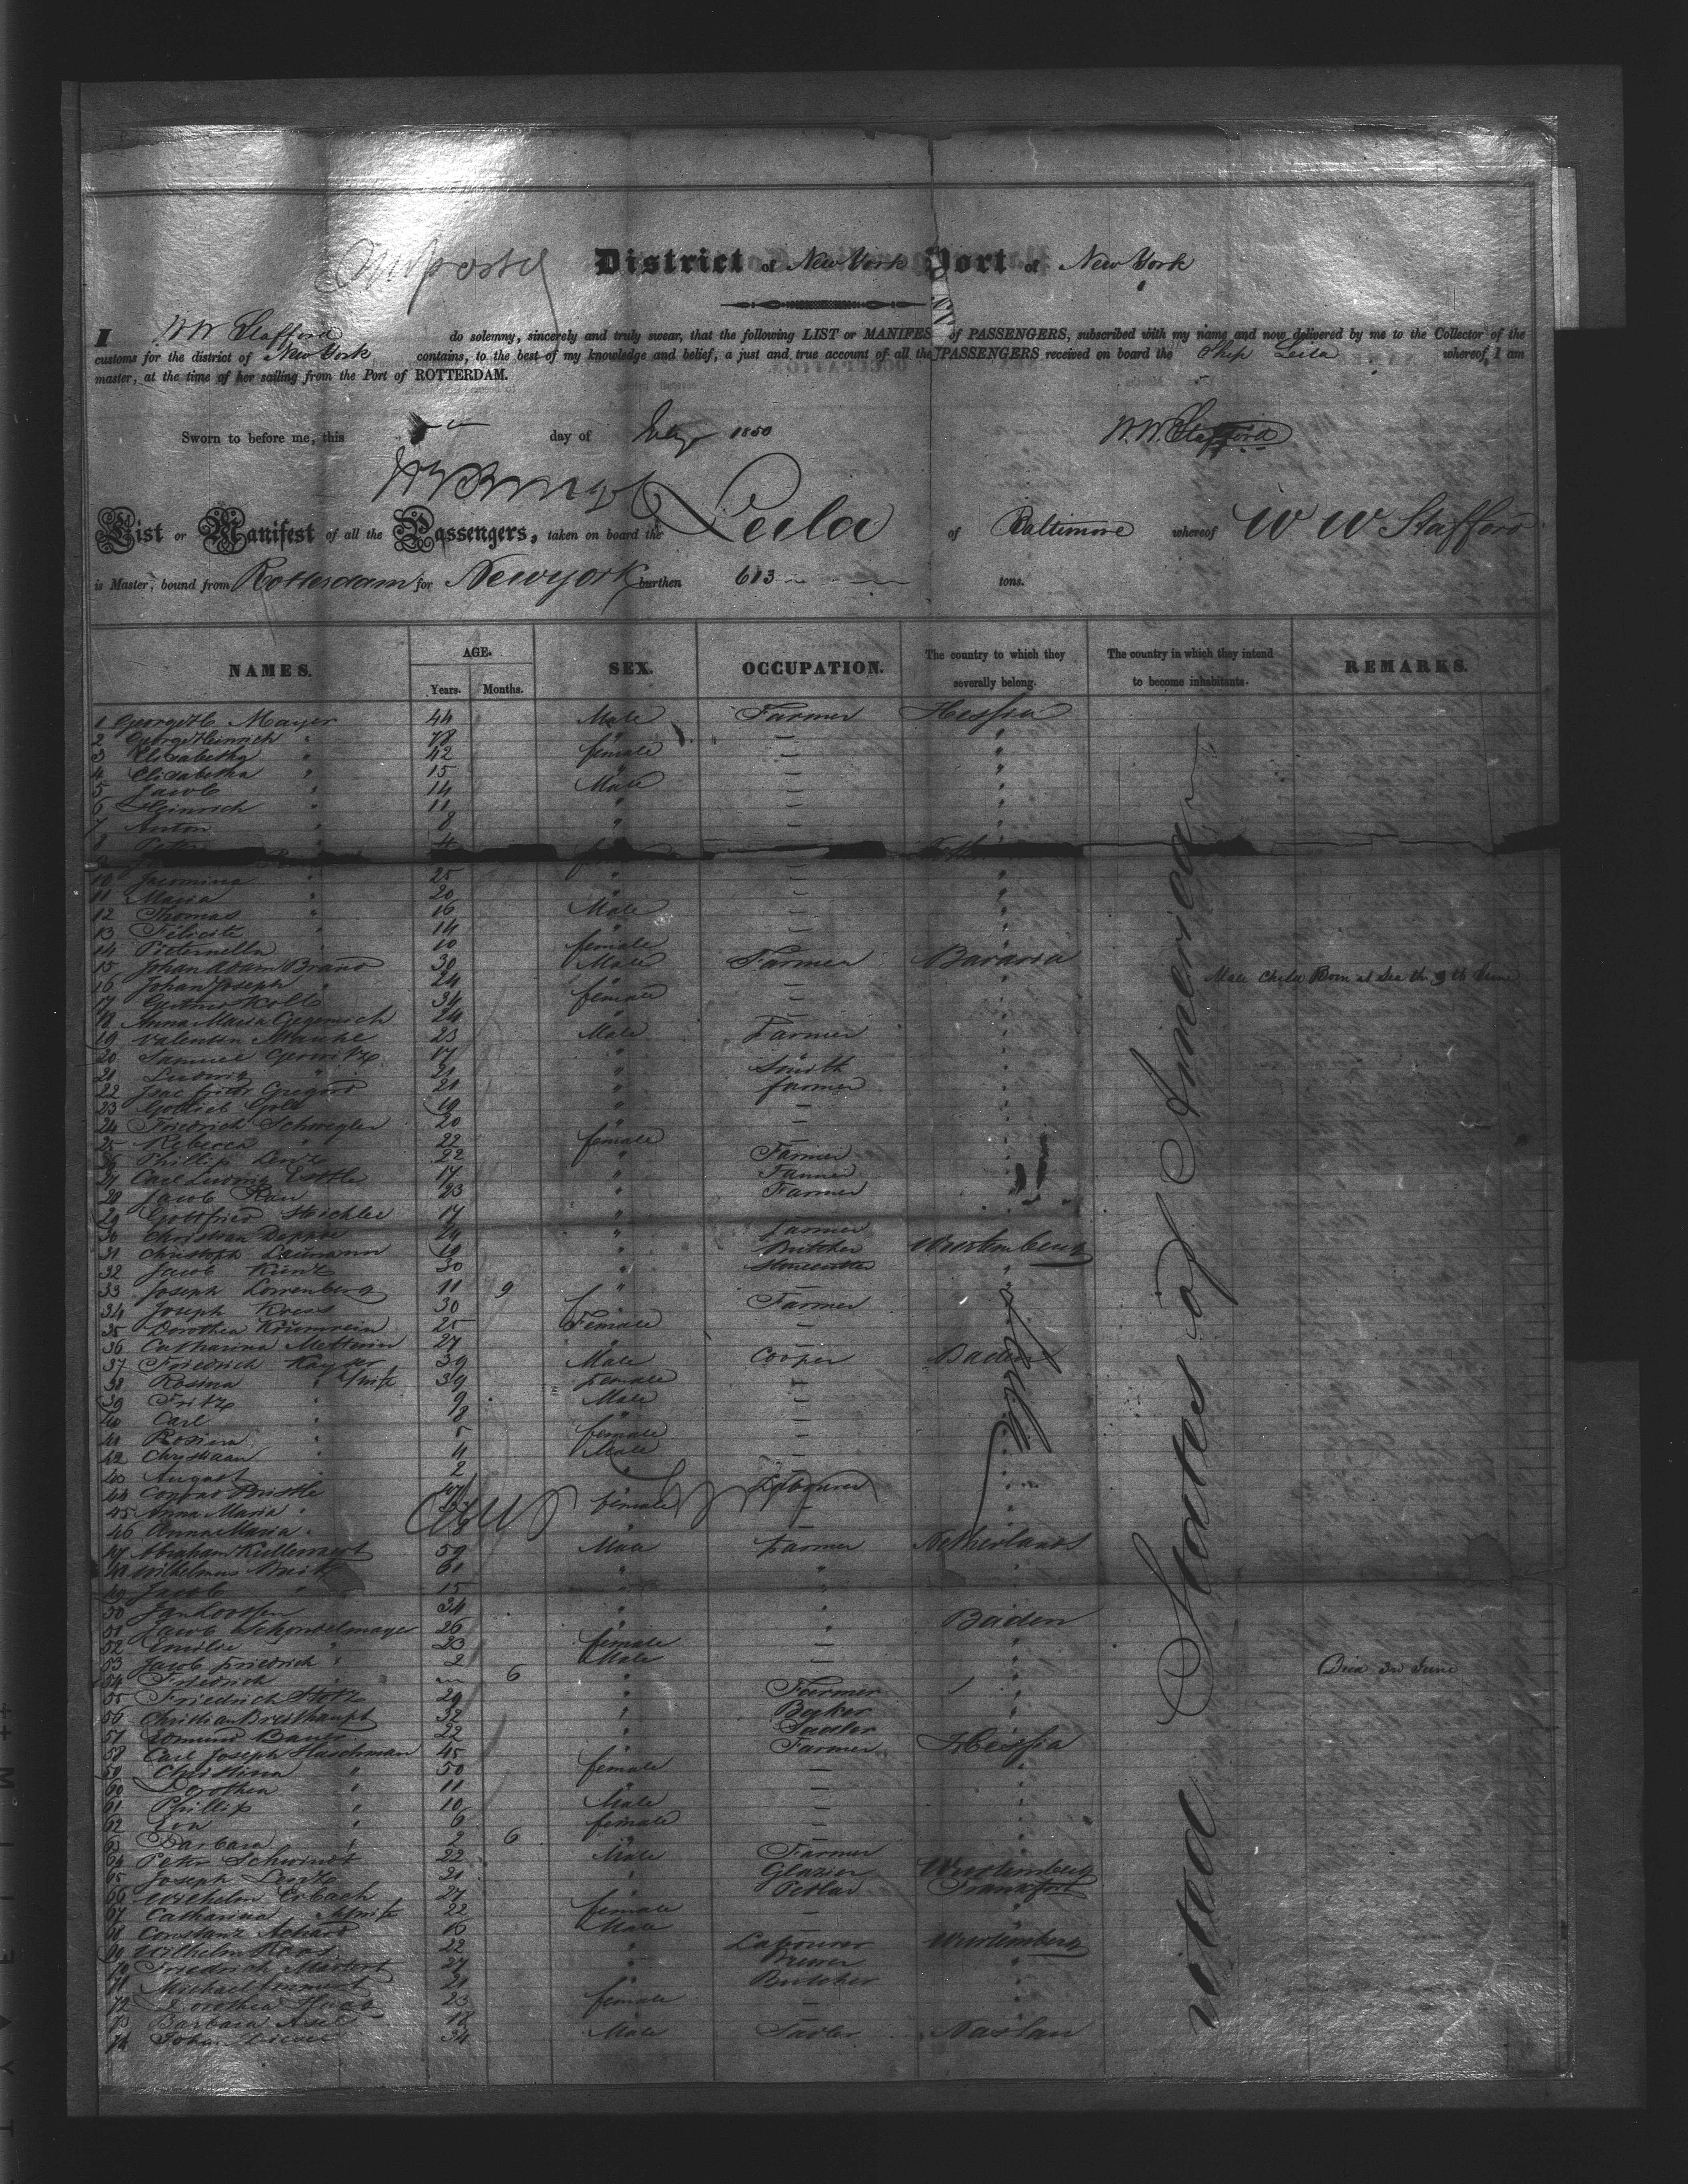 District of New York Port of New York
I W W Stafford do solemny, sincerely and truly swear, that the following LIST or MANIFES of PASSENGERS, subscribed with my name and now delivered by me to the Collector of the
customs for the district of New York contains, to the best of my knowledge and belief, a just and true account of all the PASSENGERS received on board the Ship Leila whereof I am
master, at the time of her sailing from the Port of ROTTERDAM.
Sworn to before me, this day of July 1850 W. W. Stafford
List or Manifest of all the Passengers, taken on board the Leila of Baltimore whereof W W Stafford
is Master, bound from Rotterdam for New york burthen 613 tons.
NAMES. AGE. SEX. OCCUPATION. The country to which they severally belong. The country in which they intend to become inhabitants. REMARKS.
Years. Months.
United States of America
1 George H Mayer 44 Male Farmer Hessia
2 George Heinrich " 78 " — "
3 Elisabetha " 42 female — "
4 Elisabetha " 15 " — "
5 Jacob " 14 Male — "
6 Heinrich " 11 " — "
7 Anton " 8 " — "
8 Peter " 4
9
10 Jacomina " 25 " — "
11 Maria " 20 " — "
12 Thomas " 16 Male — "
13 Felicite " 14 " — "
14 Pieternella " 10 female — "
15 Johan Adam Brand 30 Male Farmer Bavaria
16 Johan Joseph " 24 " — " Male Child Born at Sea th 9th June
17 Kolb 34 female — "
18 Anna Maria Gegenrich 24 " — "
19 Valentin 23 Male Farmer "
20 Samuel 17 " " "
21 Ludwig " 21 " Smith "
22 Isac 21 " farmer "
23 Gottlieb Gold 19 " — "
24 Friedrich Schwegler 20 " — "
25 Rebecca " 22 female — "
26 Phillip Lentz 22 " Farmer "
27 Carl Ludwig Esttle 17 " Tanner "
28 Jacob Rau 23 " Farmer "
29 Gottfried Stechler 17 " "
30 Christian Deppe 24 " farmer
31 Christoph Laumann 19 " Butcher Wurtemberg
32 Jacob Kuntz 30 " Stonecutter "
33 Joseph Lowenberg 11 9 " — "
34 Joseph Kress 30 " Farmer "
35 Dorothea Krumrein 25 Female — "
36 Catharina Metterin 27 " — "
37 Friedrich Kayser 39 Male Cooper Baden
38 Rosina " wife 39 female — "
39 Fritz " 9 Male — "
40 Carl " 8 " — "
41 Rosina " 5 female — "
42 Christiaan " 4 Male — "
43 August " 2 " — "
44 Conrad Bristle Labourer "
45 Anna Maria " female — "
46 Anna Maria " "
47 Abraham Kullewaert 59 Male Farmer Netherlands
48 Wilhelmus 61 " " "
49 Jacob " 15 " " "
50 Jan Loossen 34 " "
51 Jacob Schondelmayer 26 " " Baden
52 Emilie " 23 female — "
53 Jacob Friedrich " 2 Male — "
54 Friedrich " — 6 " " Died 3d June
55 Friedrich Stolz 29 " Farmer "
56 Christian Breithaupt 32 " Baker "
57 Edmund Bauer 22 " Sadler "
58 Carl Joseph Haschman 45 " Farmer Hessia
59 Christina " 50 female — "
60 Dorothea " 11 " — "
61 Phillip " 10 Male — "
62 Eva " 6 female — "
63 Barbara " 2 6 " — "
64 Peter Schwindt 22 Male Farmer "
65 Joseph Lentz 21 " Glazier Wurtemberg
66 Wilhelm Erbach 27 " Pedlar Frankfort
67 Catharina " wife 22 female — "
68 Constanz Achard 16 Male — "
69 Wilhelm Haas 22 " Labourer Wurtemberg
70 Friedrich Martert 27 " Brewer "
71 Michael 21 " Butcher "
72 Dorothea Haas 23 female — "
73 Barbara Asel 18 " — "
74 Johan 34 Male Tailor Nassau